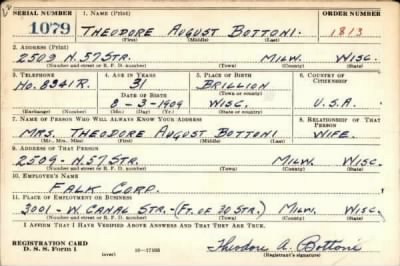 SERIAL NUMBER 1. NAME (Print) ORDER NUMBER
1079 THEODORE AUGUST BOTTONI. 1813
(First) (Middle) (Last)
2. ADDRESS (Print)
2509 N. 57 STR. MILW. WISC.
(Number and street or R. F. D. number) (Town) (County) (State)
3. TELEPHONE 4. AGE IN YEARS 5. PLACE OF BIRTH 6. COUNTRY OF CITIZENSHIP
HO. 8341R. 31 BRILLION
DATE OF BIRTH (Town or county)
8-3-1909 WISC. U.S.A.
(Exchange) (Number) (Mo.) (Day) (Yr.) (State or country)
7. NAME OF PERSON WHO WILL ALWAYS KNOW YOUR ADDRESS 8. RELATIONSHIP OF THAT PERSON
MRS. THEODORE AUGUST BOTTONI WIFE.
(Mr., Mrs., Miss) (First) (Middle) (Last)
9. ADDRESS OF THAT PERSON
2509-N. 57 STR. MILW. WISC.
(Number and street or R. F. D. number) (Town) (County) (State)
10. EMPLOYER'S NAME
FALK CORP.
11. PLACE OF EMPLOYMENT OR BUSINESS
3001-W. CANAL STR-(FT. OF 30 STR.) MILW. WISC.
(Number and street or R. F. D. number) (Town) (County) (State)
I AFFIRM THAT I HAVE VERIFIED ABOVE ANSWERS AND THAT THEY ARE TRUE.
REGISTRATION CARD
D. S. S. Form 1 (over) Theodore A. Bottoni
(Registrant's signature)